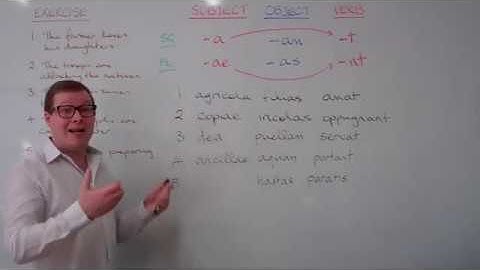 EXERCISE
1. The farmer loves
his daughters
2. The troops are
attacking the natives
3
4
preparing
SUBJECT OBJECT VERB
SG -a -am -t
PL -ae -as -nt
1 agricola filias amat
2 copiae incolas oppugnant
3 dea puellam servat
4 ancillae aquam portant
5 hastas paratis